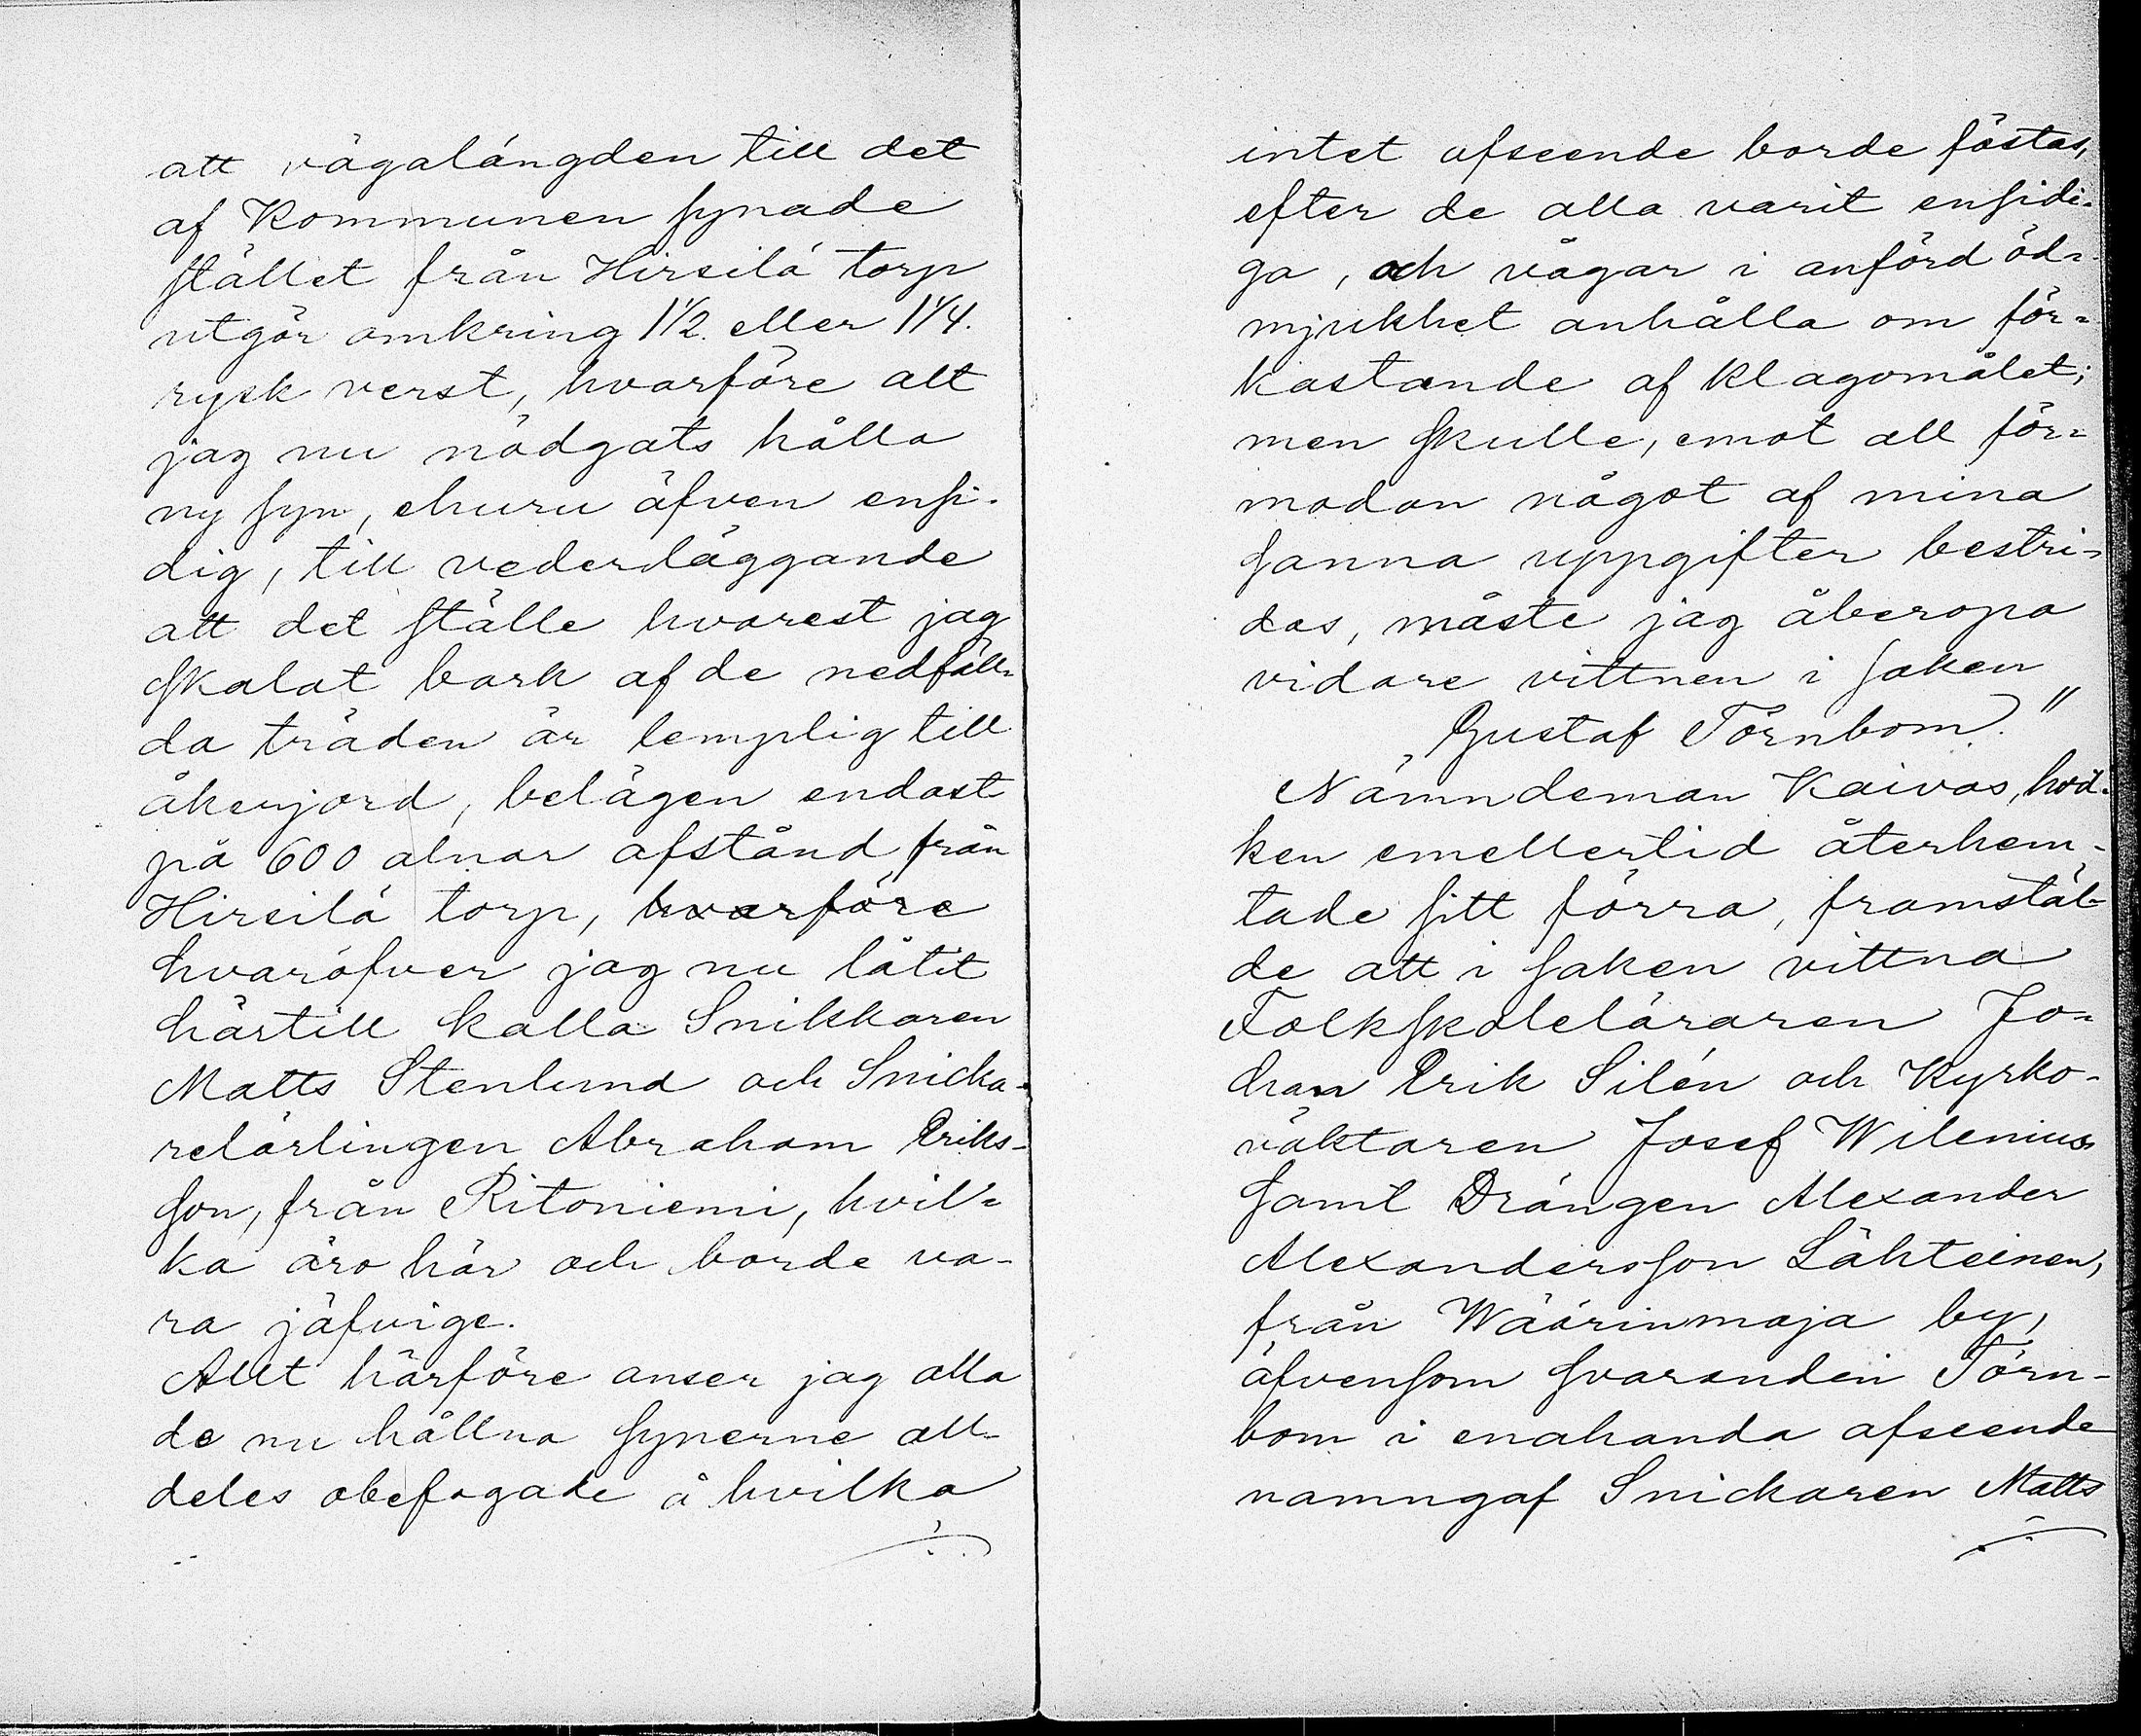 att vägalängden till det
af Kommunen synade
stället från Hirsilä torp
utgör omkring 1 1/2. eller 1 1/4.
rysk verst, hvarföre att
jag nu nödgats hålla
ny syn, ehuru äfven ensi-
dig, till vederläggande
att det ställe hvarest jag
skalat bark af de nedfäll-
da träden är lemplig till
åkerjord, belägen endast
på 600 alnar afstånd från
Hirsilä torp, hvarföre
hvaröfver jag nu låtit
härtill kalla Snikkaren
Matts Stenlund och Snicka-
relärlingen Abraham Eriks-
son, från Ritoniemi, hvil-
ka äro här och borde va-
ra jäfvige.
Allt härföre anser jag alla
de nu hållna synerne all-
deles obefogade å hvilka
intet afseende borde fästas,
efter de alla varit ensidi-
ga, och vågar i anförd öd-
mjukhet anhålla om för-
kastande af klagomålet;
men skulle, emot all för-
modan något af mina
sanna uppgifter bestri-
das, måste jag åberopa
vidare vittnen i saken
Gustaf Törnbom."
Nämndeman Kaivas, hvil-
ken emellertid återhem-
tade sitt förra, framstäl-
de att i saken vittna
Folkskoleläraren Jo-
han Erik Silén och Kyrko-
väktaren Josef Wilenius
samt Drängen Alexander
Alexandersson Lähteinen,
från Wäärinmaja by,
äfvensom svaranden Törn-
bom i enahanda afseende
namngaf Snickaren Matts